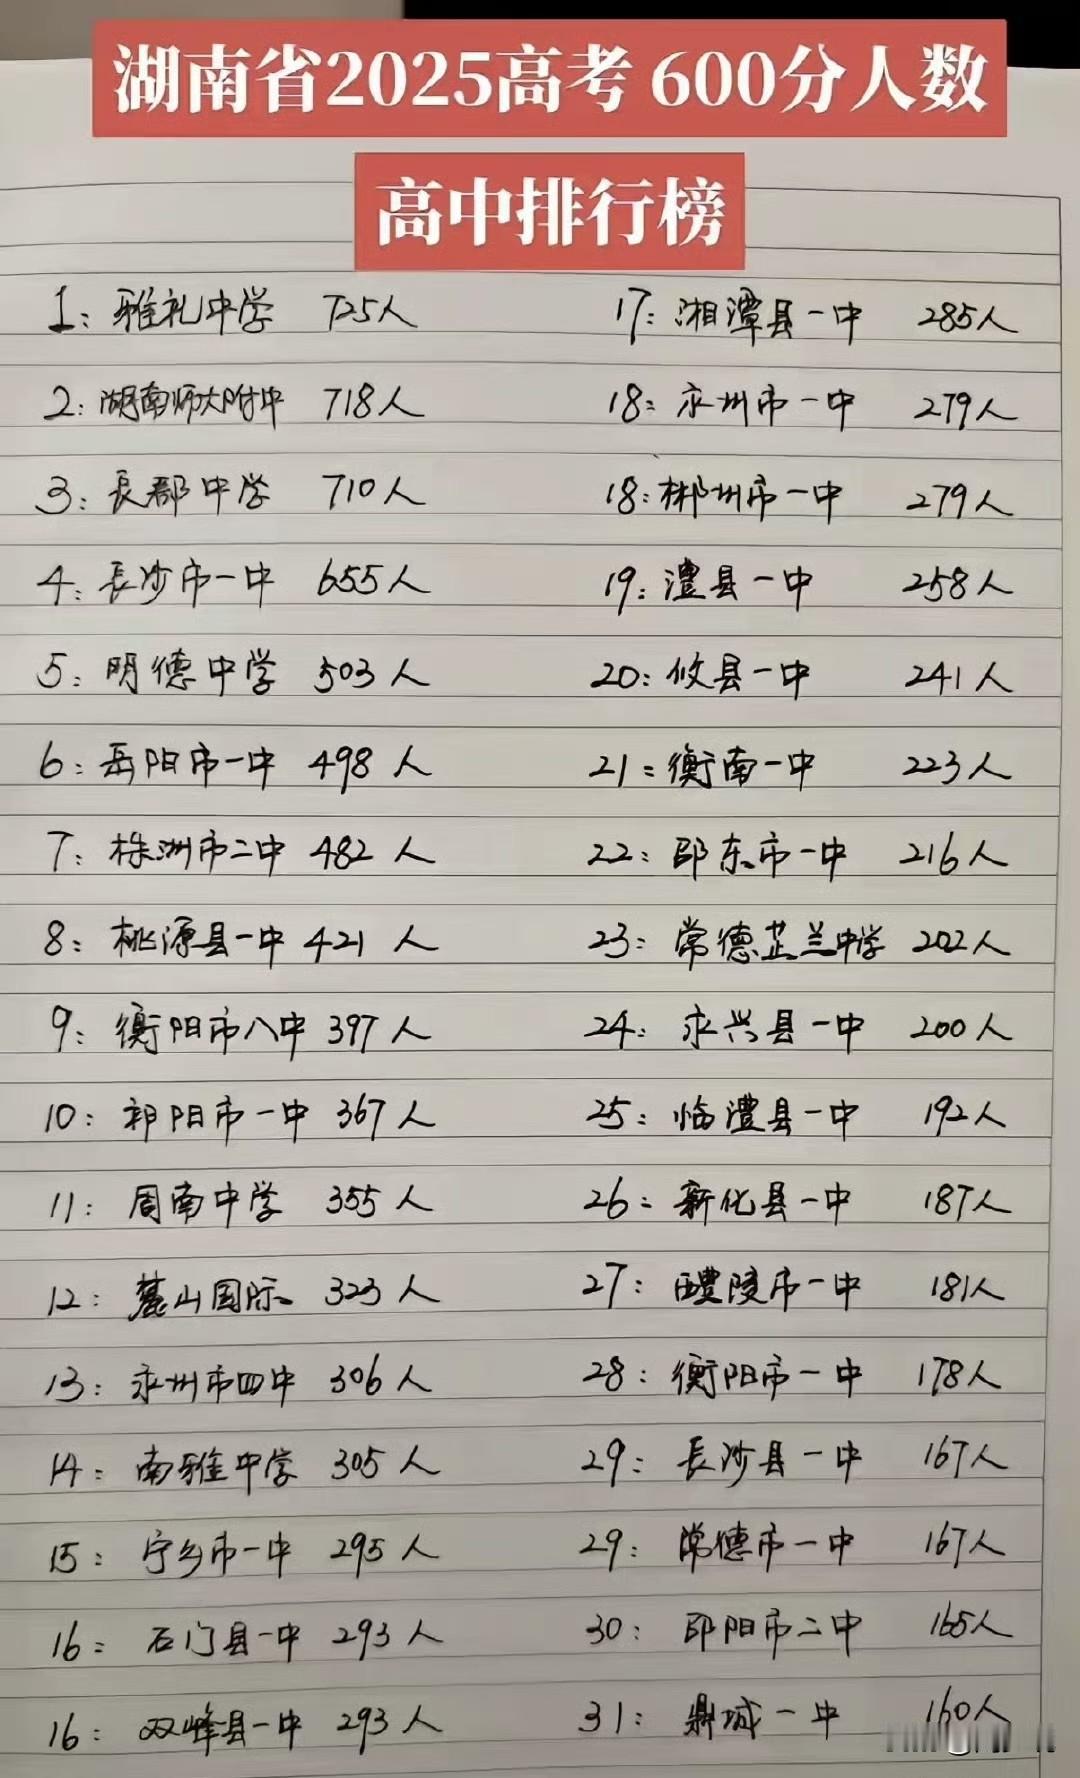 湖南省2025高考 600分人数
高中排行榜
1: 雅礼中学 725人
2: 湖南师大附中 718人
3: 長郡中学 710人
4: 長沙市一中 655人
5: 明德中学 503人
6: 岳阳市一中 498人
7: 株洲市二中 482人
8: 桃源县一中 421人
9: 衡阳市八中 397人
10: 祁阳市一中 367人
11: 周南中学 355人
12: 麓山国际 323人
13: 永州市四中 306人
14: 南雅中学 305人
15: 宁乡市一中 295人
16: 石门县一中 293人
16: 双峰县一中 293人
17: 湘潭县一中 285人
18: 永州市一中 279人
18: 郴州市一中 279人
19: 澧县一中 258人
20: 攸县一中 241人
21: 衡南一中 223人
22: 邵东市一中 216人
23: 常德芷兰中学 202人
24: 永兴县一中 200人
25: 临澧县一中 192人
26: 新化县一中 187人
27: 醴陵市一中 181人
28: 衡阳市一中 178人
29: 長沙县一中 167人
29: 常德市一中 167人
30: 邵阳市二中 165人
31: 鼎城一中 160人